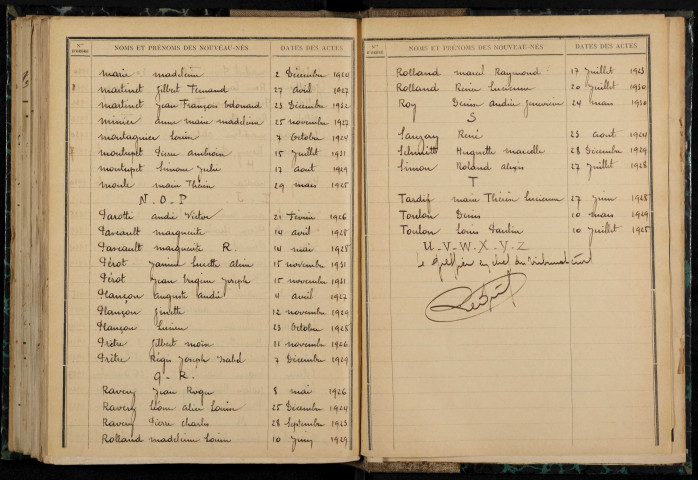 Nos D'ORDRE NOMS ET PRÉNOMS DES NOUVEAU-NÉS DATES DES ACTES
marie madeleine 2 Décembre 1924
martinet Gilbert Fernand 27 avril 1927
martinet Jean François Edouard 23 Décembre 1922
minier anne marie madeleine 25 novembre 1927
montagnier Louise 7 Octobre 1924
montupet Pierre ambroise 15 Juillet 1931
montupet Simone Julie 17 aout 1929
monte marie Thérèse 29 mars 1925
N-O-P
Parotti andré Victor 21 Février 1926
Pascault marguerite 14 avril 1928
Pascault marguerite R. 14 mai 1928
Pérot Janine Lucette 15 novembre 1931
Pérot Jean Eugène Joseph 15 novembre 1931
Plançon auguste andré 4 avril 1927
Plançon ginette 12 novembre 1929
Plançon Lucien 23 Octobre 1928
Prêtre Gilbert 11 novembre 1926
Prêtre Régis Joseph 7 Décembre 1929
Q-R
Ravery Jean Roger 8 mai 1926
Ravery alice Louise 25 Décembre 1924
Ravery Pierre charles 28 Septembre 1923
Rolland madeleine Louise 10 Juin 1929
Nos D'ORDRE NOMS ET PRÉNOMS DES NOUVEAU-NÉS DATES DES ACTES
Rolland marcel Raymond 17 Juillet 1923
Rolland Renée Lucienne 20 Juillet 1930
Roy Denise andrée Geneviève 24 mars 1930
S
René 23 aout 1924
Schmitt Huguette marcelle 28 Décembre 1929
Simon Roland alexis 27 Juillet 1928
T
Tardif marie Thérèse Lucienne 27 Juin 1928
Toulon Denis 10 mars 1929
Toulon Louis Paulin 10 Juillet 1925
U-V-W-X-Y-Z
Le Greffier en chef du Tribunal civil